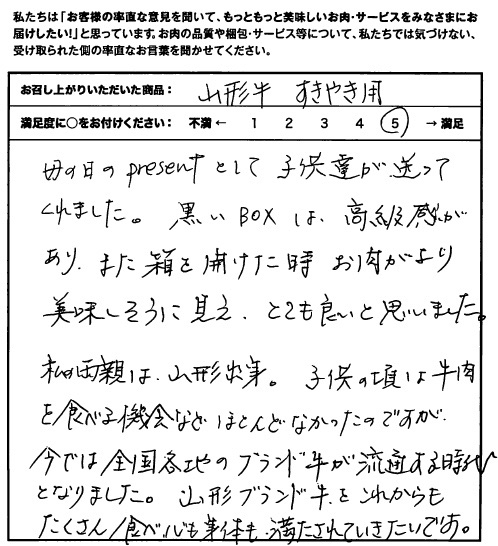 私たちは「お客様の率直な意見を聞いて、もっともっと美味しいお肉・サービスをみなさまにお
届けしたい!」と思っています。お肉の品質や梱包・サービス等について、私たちでは気づけない、
受け取られた側の率直なお言葉を聞かせてください。
お召し上がりいただいた商品: 山形牛 すきやき用
満足度に○をお付けください: 不満 ← 1 2 3 4 5 → 満足
母の日のpresentとして子供達が送って
くれました。黒いBOXは、高級感が
あり、また箱を開けた時お肉がより
美味しそうに見え、とても良いと思いました。
私の両親は、山形出身。子供の頃は牛肉
を食べる機会などほとんどなかったのですが、
今では全国各地のブランド牛が流通する時代
となりました。山形ブランド牛をこれからも
たくさん食べ心も身体も満たされていきたいです。